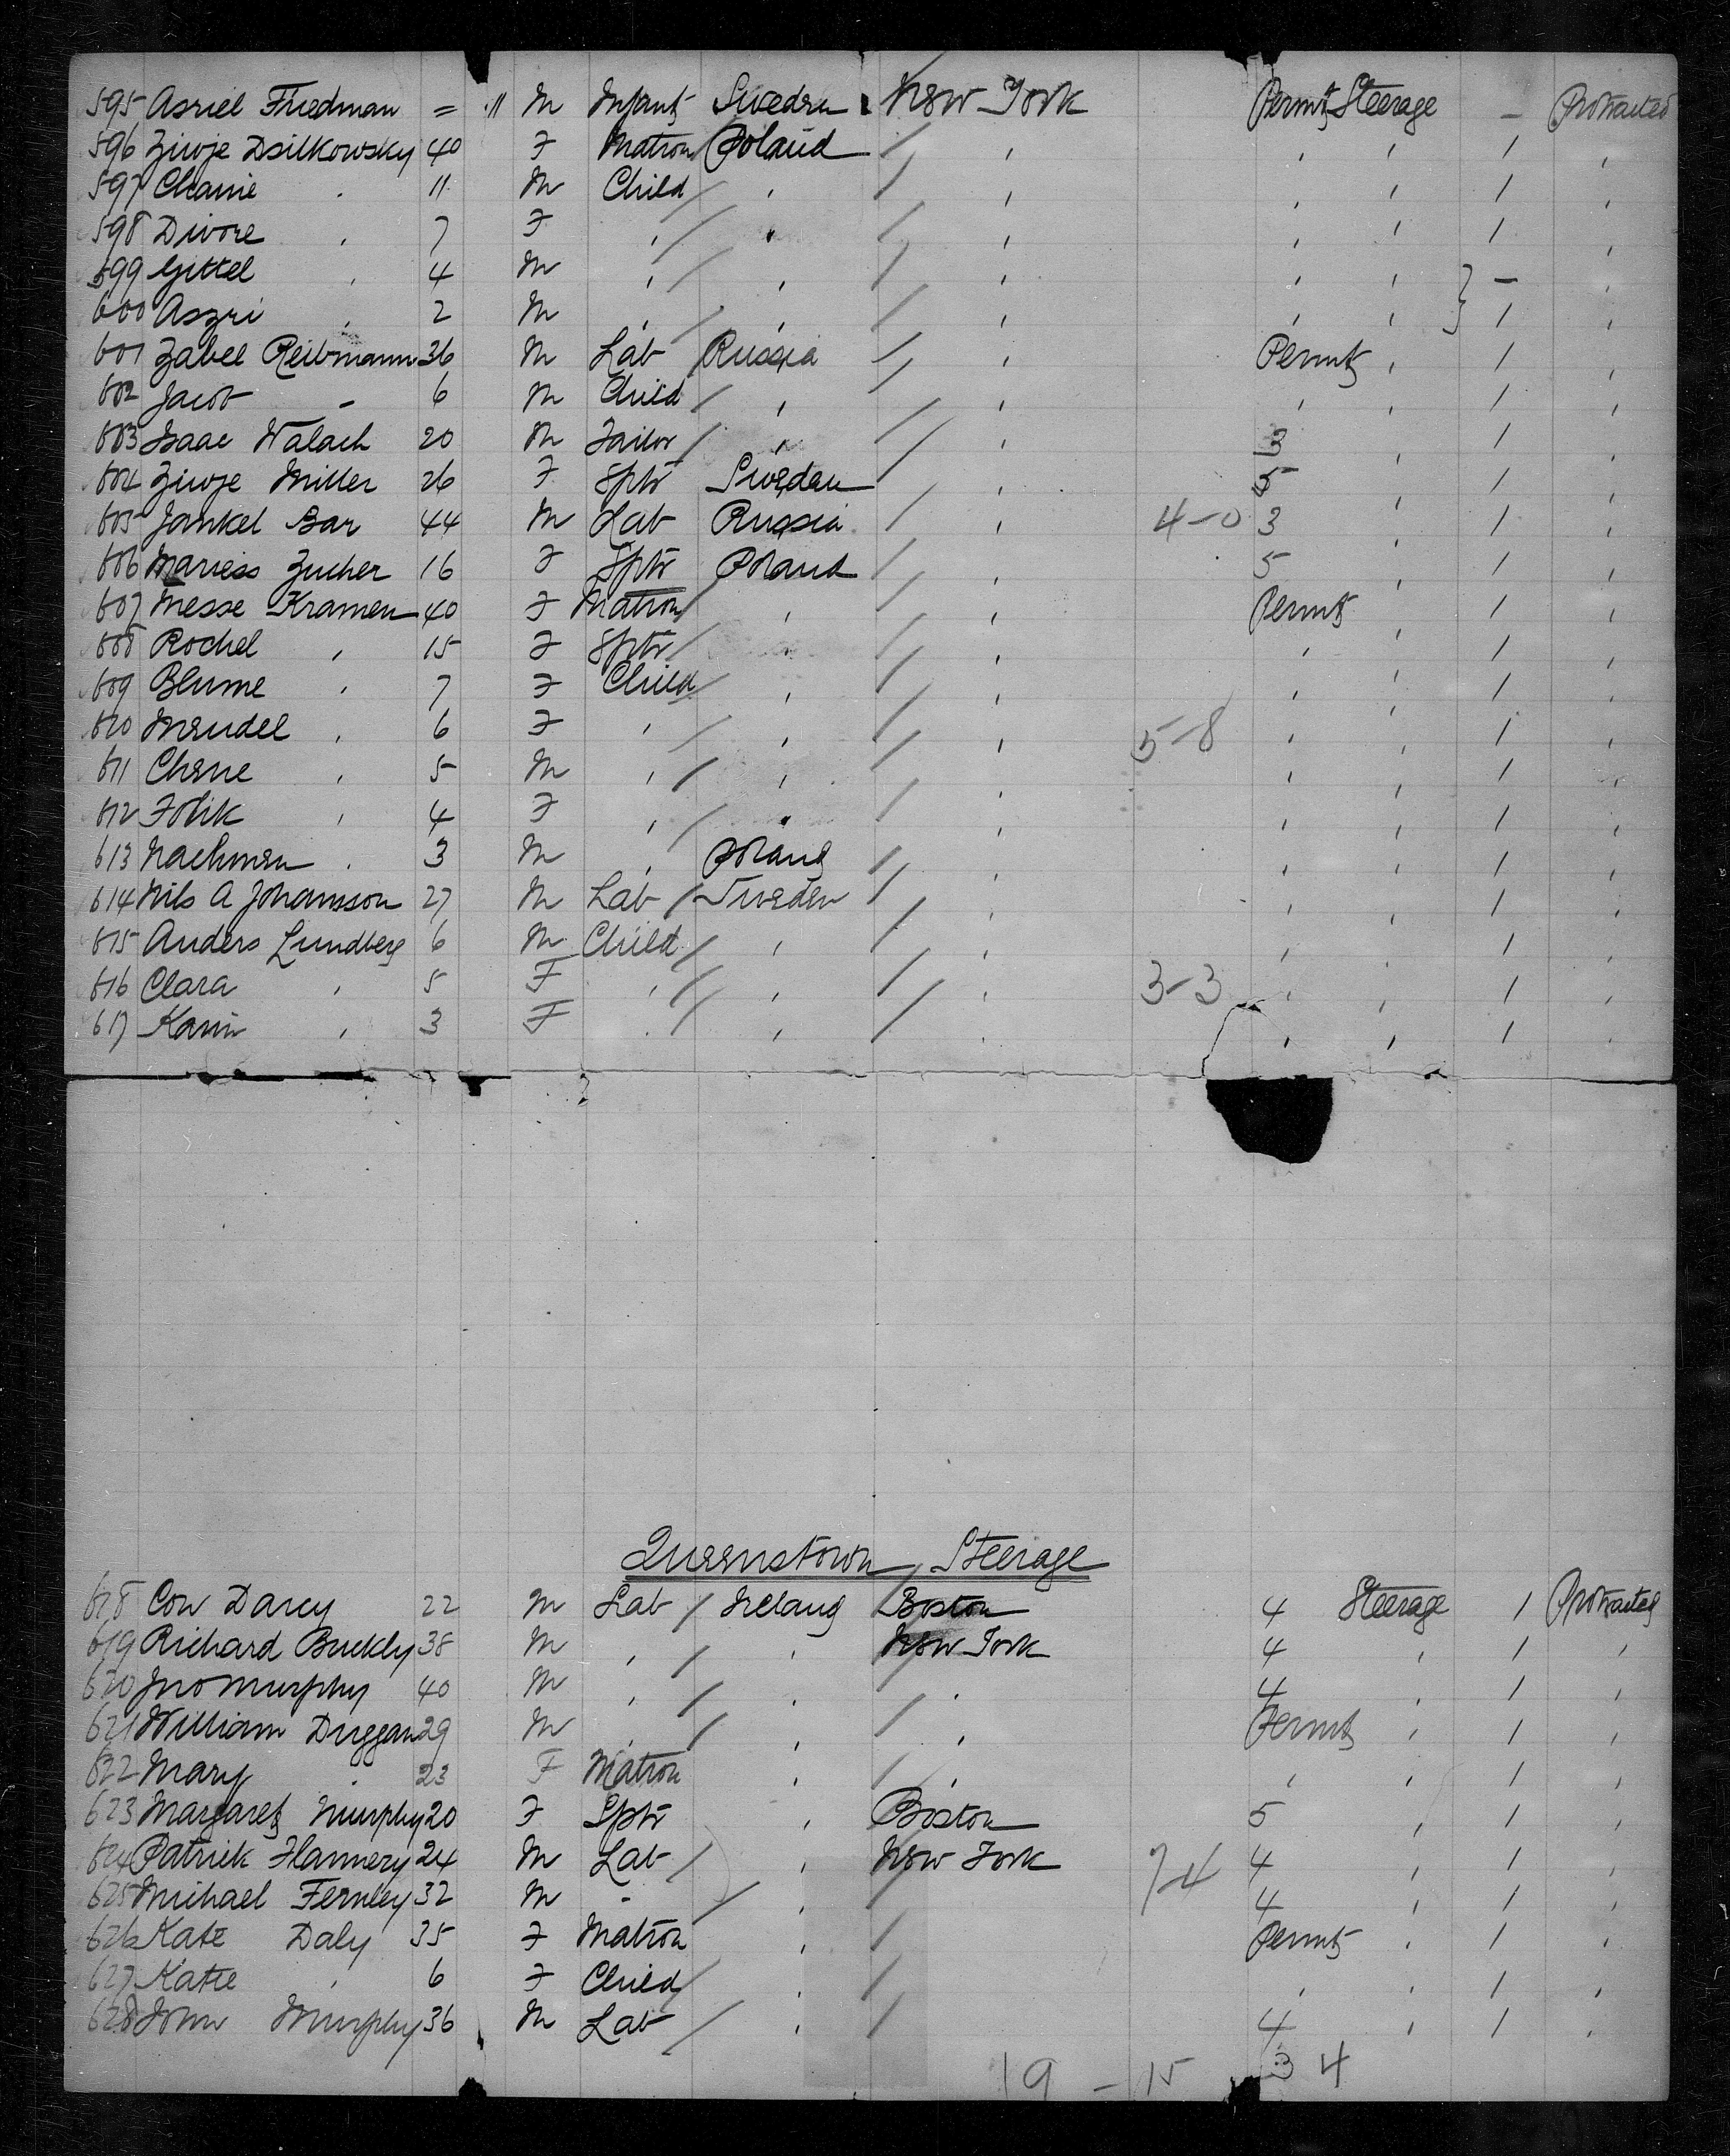 595 Asriel Friedman = 11 M Infant Sweden New York Permt Steerage - Protracted
596 Ziwje Dsilkowsky 40 F Matron Poland / ' ' ' 1 '
597 Chanie ' 11 M Child / ' / ' ' ' 1 '
598 Divore ' 7 F ' / ' / ' ' ' 1 '
599 Gittel ' 4 M ' / ' / ' ' ' } - '
600 Aszri ' 2 M ' / ' / ' ' ' } 1 '
601 Zabel Reibmann 36 M Lab Russia / ' Permt ' 1 '
602 Jacob - 6 M Child / ' / ' ' ' 1 '
603 Isaac Walach 20 M Tailor / ' / ' 3 ' 1 '
604 Ziwje Miller 26 F Sptr Sweden / ' 5 ' 1 '
605 Jankel Bar 44 M Lab Russia / ' 4-0 3 ' 1 '
606 Mariess Zucher 16 F Sptr Poland / ' 5 ' 1 '
607 Messe Kramen 40 F Matron ' / ' Permt ' 1 '
608 Rochel ' 15 F Sptr / / ' ' ' 1 '
609 Blume ' 7 F Child / ' / ' ' ' 1 '
610 Mendel ' 6 F ' / ' / ' 5-8 ' ' 1 '
611 Chene ' 5 M ' / ' / ' ' ' 1 '
612 Folik ' 4 F ' / ' / ' ' ' 1 '
613 Nachmen ' 3 M ' Poland / ' ' ' 1 '
614 Nils A Johansson 27 M Lab / Sweden / ' ' ' 1 '
615 Anders Lundberg 6 M Child / ' / ' ' ' 1 '
616 Clara ' 5 F ' / ' / ' 3-3 ' ' 1 '
617 Karin ' 3 F ' / ' / ' ' ' 1 '
Queenstown Steerage
618 Con Darcy 22 M Lab / Ireland Boston 4 Steerage 1 Protracted
619 Richard Buckly 38 M ' / ' New York 4 ' 1 '
620 Jno Murphy 40 M ' / ' / ' 4 ' 1 '
621 William Duggan 29 M ' / ' / ' Permt ' 1 '
622 Mary ' 23 F Matron ' / ' ' ' 1 '
623 Margaret Murphy 20 F Sptr ' Boston 5 ' 1 '
624 Patrick Flannery 24 M Lab / ' New York 7-4 4 ' 1 '
625 Michael Fernley 32 M - / ' / 4 ' 1 '
626 Kate Daly 35 F Matron ' / Permt ' 1 '
627 Katie ' 6 F Child / ' / ' ' 1 '
628 John Murphy 36 M Lab / ' / 4 ' 1 '
19 - 15 34